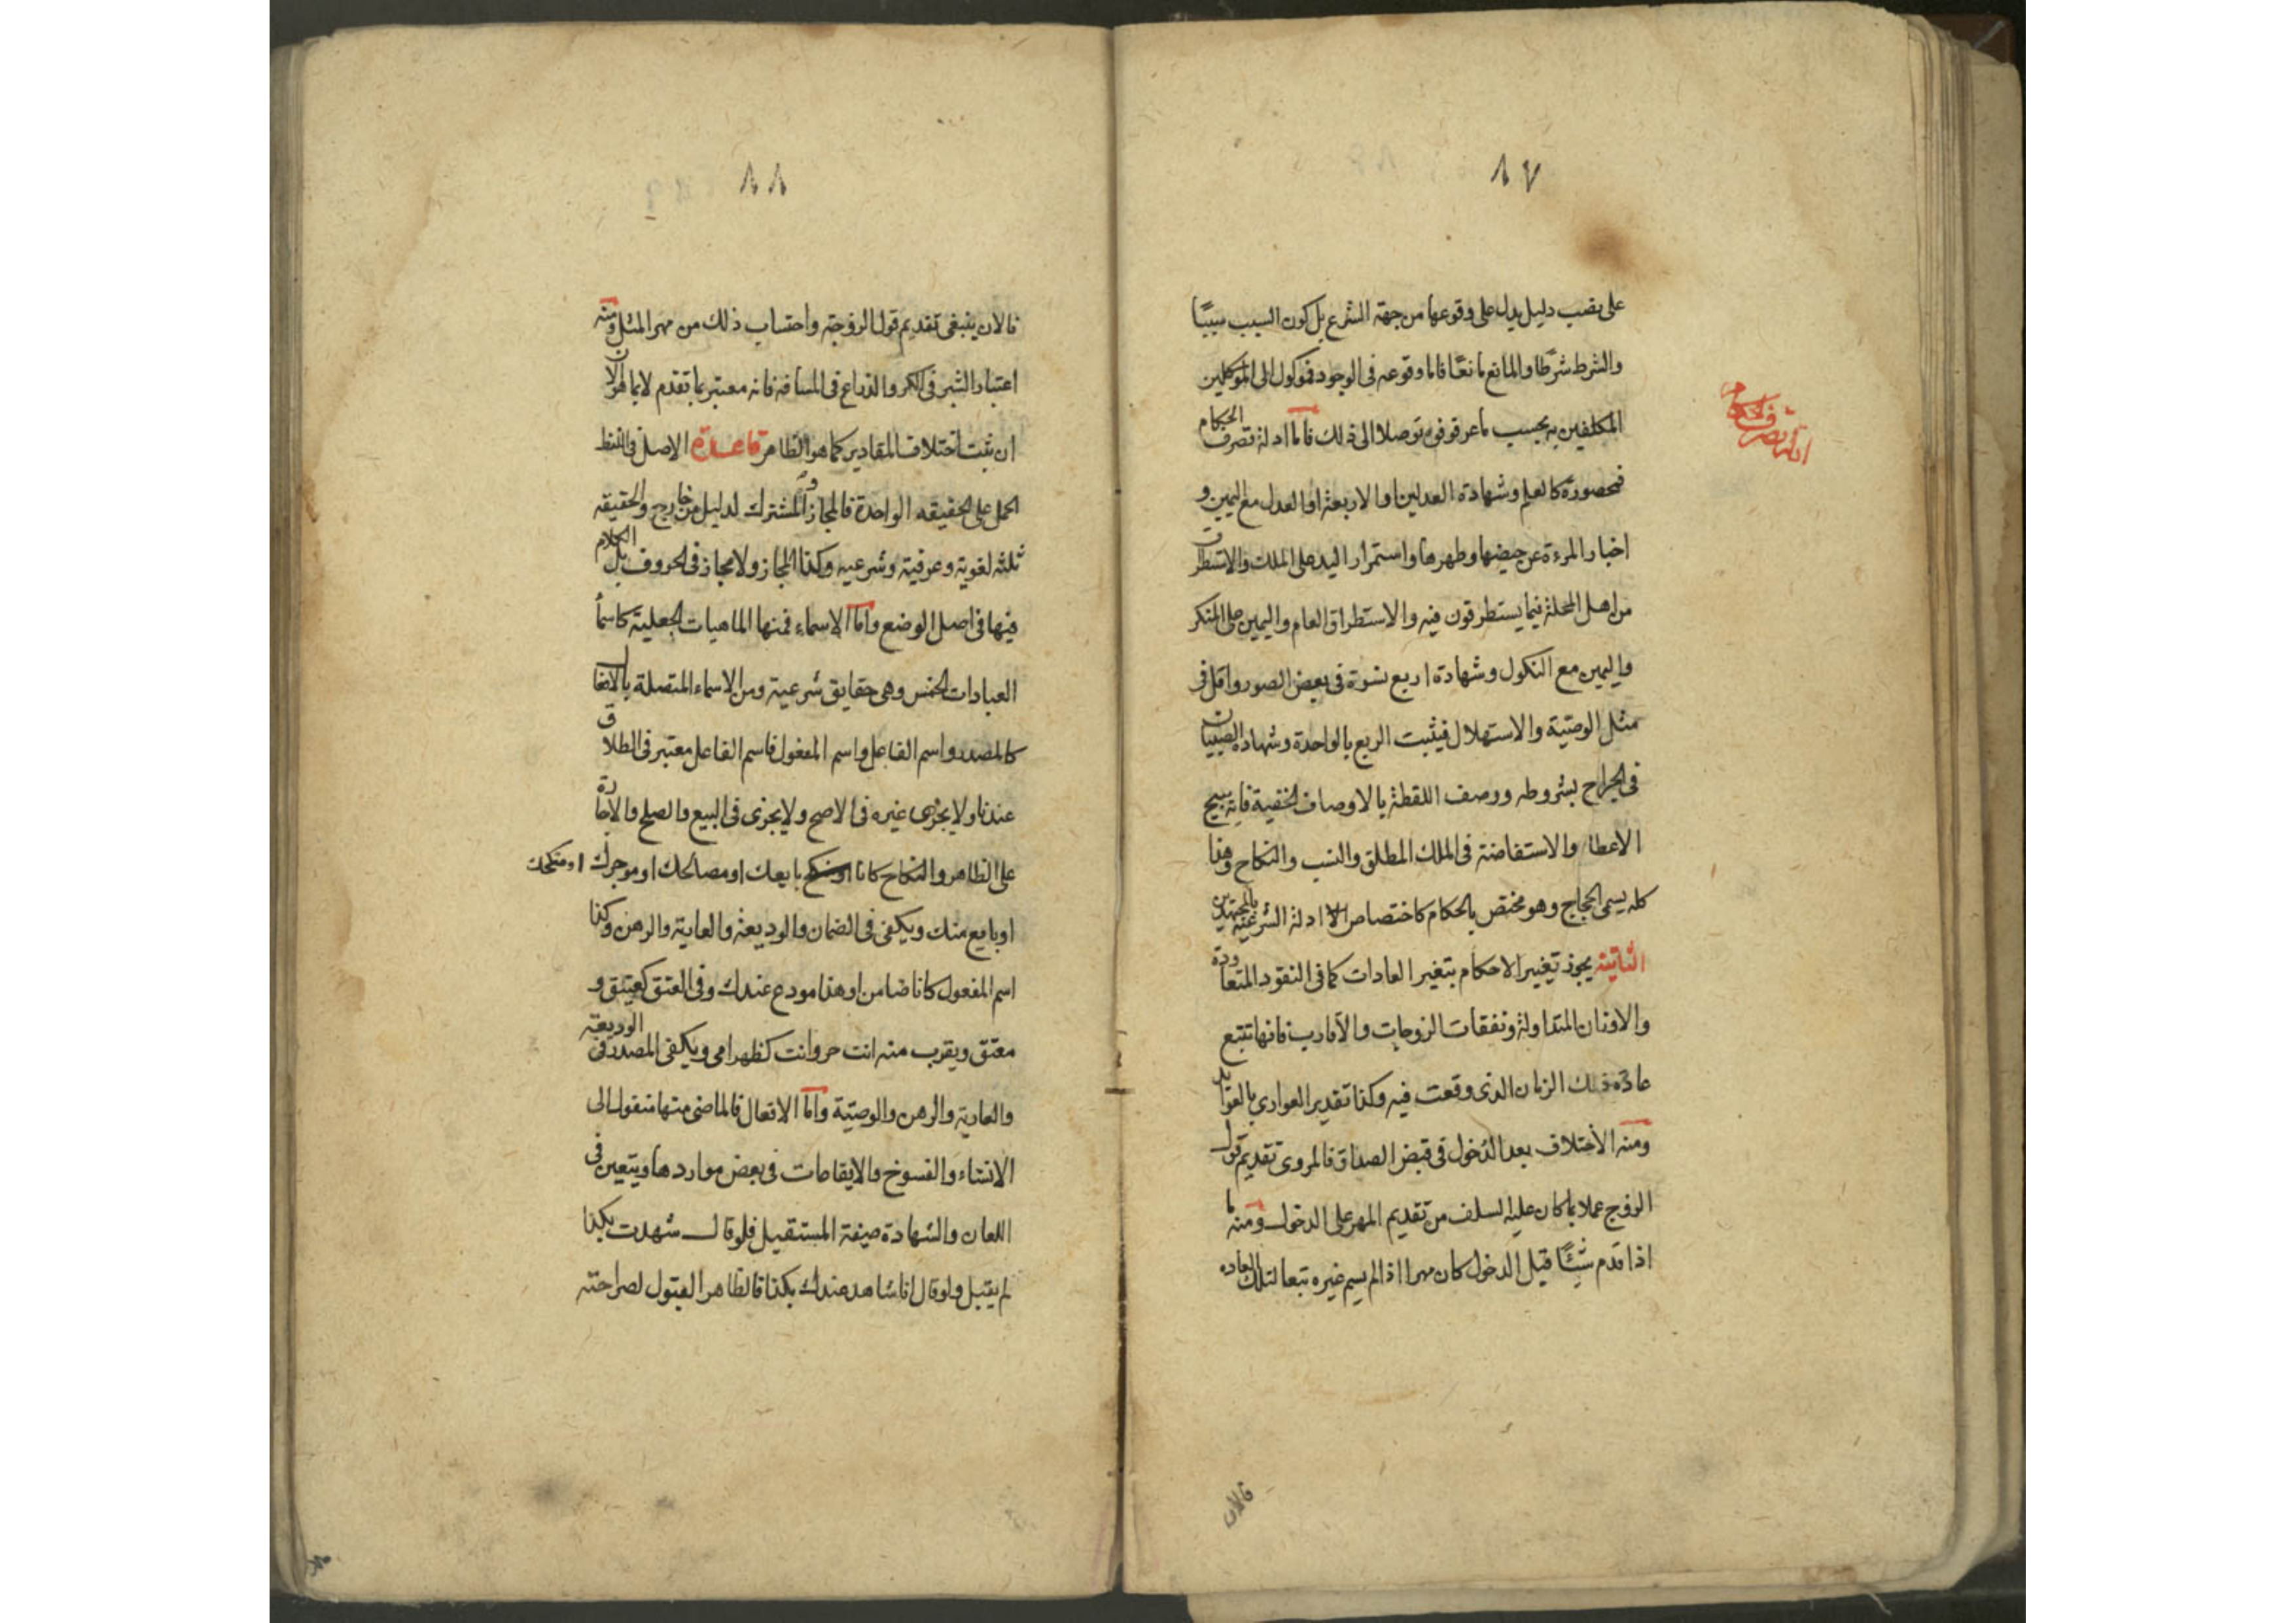 ٨٧
على نصب دليل يدل على وقوعها من جهة الشرع بل كون السبب سببًا
والشرط شرطًا والمانع مانعًا فاما وقوعه فى الوجود فموكول الى الموكلين
المكلفين به بحسب ما عرفوه توصلا الى ذلك فاما ادلة تصرف الحكام
فمحصورة كالعلم وشهادة العدلين او الاربعة او العدل مع اليمين و
اخبار المرءة عن حيضها وطهرها واستمرار اليد على الملك والاستطراق
من اهل المحلة فيما يستطرقون فيه والاستطراق العام واليمين على المنكر
واليمين مع النكول وشهادة اربع نسوة فى بعض الصور واقل فى
مثل الوصية والاستهلال فيثبت الربع بالواحدة وشهادة الصبيان
فى الجراح بشروطه ووصف اللقطة بالاوصاف الخفية فانه يبيح
الاعطا والاستفاضة فى الملك المطلق والنسب والنكاح وهذا
كله يسمى الحجاج وهو مختص بالحكام كاختصاص الادلة الشرعية بالمجتهدين
الثانية يجوز تغيير الاحكام بتغير العادات كما فى النقود المتعاودة
والاوزان المتداولة ونفقات الزوجات والاقارب فانها تتبع
عادة ذلك الزمان الذى وقعت فيه وكذا تقدير العوارى بالعوايد
ومنه الاختلاف بعد الدخول فى قبض الصداق فالمروى تقديم قول
الزوج عملا بما كان عليه السلف من تقديم المهر على الدخول ومنه ما
اذا قدم شيئًا قبل الدخول كان مهرا اذا لم يسم غيره تبعا لتلك العادة
فالان
ادلة تصرف الحكام
٨٨
فالان ينبغى تقديم قول الزوجة واحتساب ذلك من مهر المثل ومنه
اعتبار الشبر فى الكر والذراع فى المسافة فانه معتبر بما تقدم لا بما هو الان
ان ثبت اختلاف المقادير كما هو الظاهر قاعدة الاصل فى اللفظ
الحمل على الحقيقه الواحدة فالمجاز والمشترك لدليل من خارج والحقيقه
ثلثه لغوية وعرفية وشرعيه وكذا المجاز ولا مجاز فى الحروف بل الكلام
فيها فى اصل الوضع واما الاسماء فمنها الماهيات الجعلية كاسما
العبادات الخمس وهى حقايق شرعية ومن الاسماء المتصلة بالافعا
كالمصدر واسم الفاعل واسم المفعول فاسم الفاعل معتبر فى الطلاق
عندنا ولا يجزى غيره فى الاصح ولا يجزى فى البيع والصلح والاجارة
على الظاهر والنكاح كانا بايعك او مصالحك او موجرك او منكحك
او بايع منك ويكفى فى الضمان والوديعة والعارية والرهن وكذا
اسم المفعول كانا ضامن او هذا مودع عندك وفى العتق كعتيق و
معتق ويقرب منه انت حر وانت كظهر امى ويكفى المصدر فى الوديعة
والعارية والرهن والوصية واما الافعال فالماضى منها منقول الى
الانشاء والفسوخ والايقاعات فى بعض مواردها ويتعين فى
اللعان والشهادة صيغة المستقبل فلو قال شهدت بكذا
لم يقبل ولو قال انا شاهد عندك بكذا فالظاهر القبول لصراحته